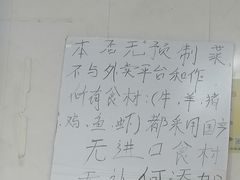 本店无预制菜
不与外卖平台和作
所有食材:(牛.羊.猪
鸡.鱼.虾)都采用国产
无进口食材
无认何添加